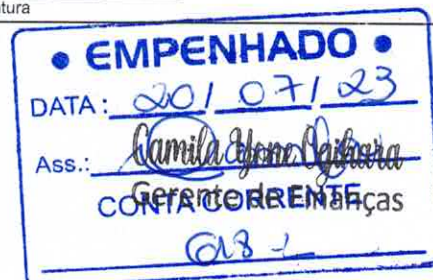 tura
• EMPENHADO •
DATA: 20/07/23
Ass.: Camila Yone Ogihara
Gerente de Finanças
CONTA CORRENTE